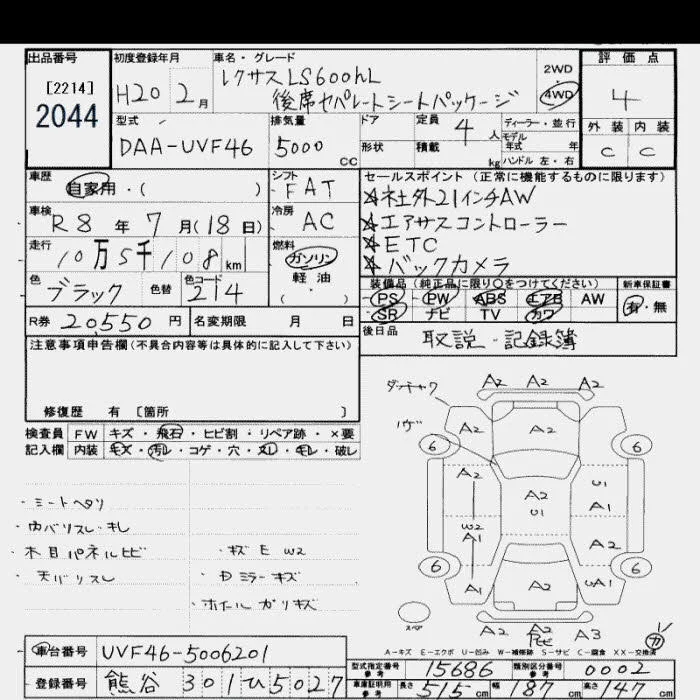 出品番号
[2214]
2044
初度登録年月
H20 2月
車名・グレード
レクサス LS600hL
後席セパレートシートパッケージ
2WD
4WD
評価点
4
外装 内装
C C
型式
DAA-UVF46
排気量
5000 CC
ドア
形状
定員 4人
積載 kg
ディーラー・並行
モデル年式 年
ハンドル 左・右
車歴
自家用・( )
シフト
FAT
車検
R8年 7月(18日)
冷房
AC
走行
10万5千108km
燃料
ガソリン
軽油
( ・ )
色
ブラック
色替
色コード
214
R券 20,550円
名変期限 月 日
セールスポイント(正常に機能するものに限ります)
☆社外21インチAW
☆エアサスコントローラー
☆ETC
☆バックカメラ
装備品(純正品に限り○をつけてください)
PS PW ABS エアB AW
SR ナビ TV カワ
新車保証書
有・無
後日品
取説・記録簿
注意事項申告欄(不具合内容等は具体的に記入して下さい)
修復歴 有 [箇所 ]
検査員記入欄
FW キズ・飛石・ヒビ割・リペア跡・×要
内装 キズ・汚レ・コゲ・穴・スレ・キレ・破レ
・シートヘタリ
・内バリスレ・キレ
・木目パネルヒビ
・天バリスレ
・キズ E W2
・Dミラーキズ
・ホイールガリキズ
A2 A2 A2
A2 A2
6 6
A2 A2 U1
U1 A1
W2
A1 A2
6 6
A1 A2 UA1
スペア
A2 A2 A3
A-キズ E-エクボ U-凹み W-補修跡 S-サビ C-腐食 XX-交換済
車台番号 UVF46-5006201
登録番号 熊谷 301 ひ 5027
型式指定番号 参考 15686
類別区分番号 参考 0002
車庫証明用 参考 長さ 515cm 幅 187cm 高さ 147cm